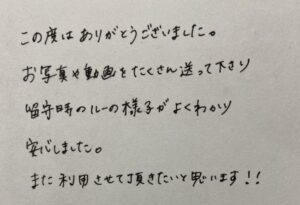 この度はありがとうございました。
お写真や動画をたくさん送って下さり
留守時のルーの様子がよくわかり
安心しました。
また利用させて頂きたいと思います!!